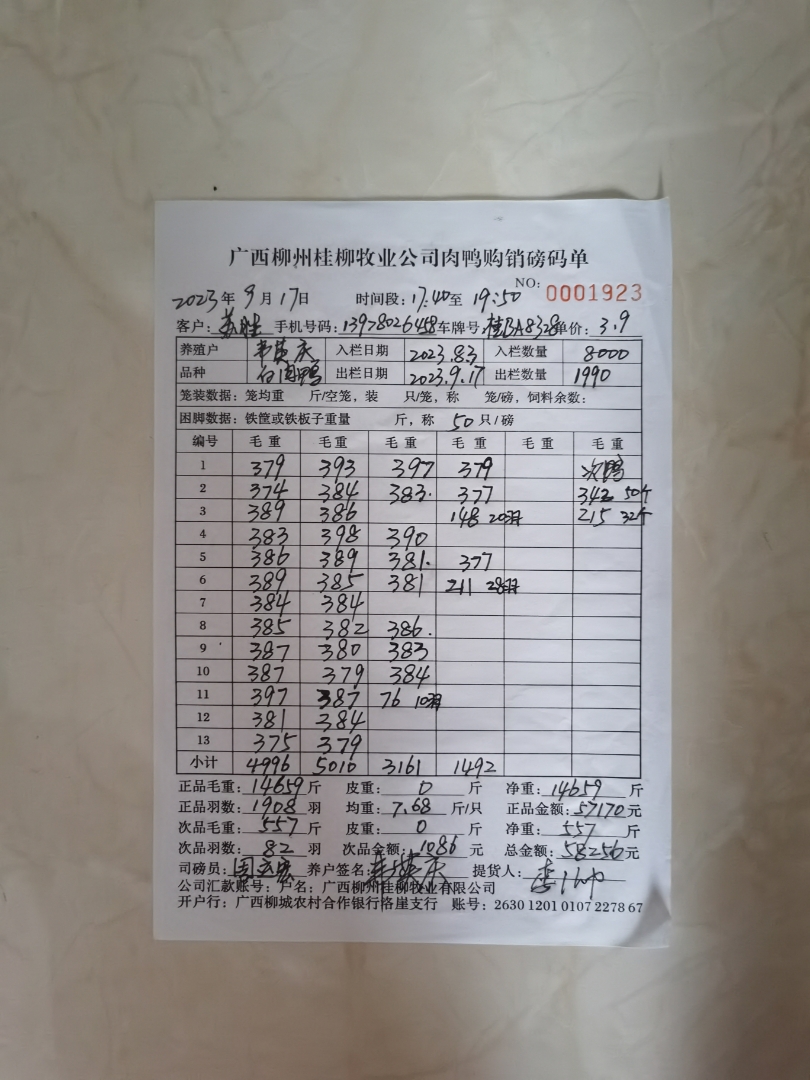 广西柳州桂柳牧业公司肉鸭购销磅码单
NO: 0001923
2023年 9月17日 时间段:17:40至 19:50
客户: 苏胜 手机号码:13978026458 车牌号:桂BA8328 单价: 3.9
养殖户 韦英庆 入栏日期 2023.8.3 入栏数量 8000
品种 白肉鸭 出栏日期 2023.9.17 出栏数量 1990
笼装数据:笼均重 斤/空笼,装 只/笼,称 笼/磅,饲料余数:
困脚数据:铁筐或铁板子重量 斤,称 50 只/磅
编号 毛重 毛重 毛重 毛重 毛重 毛重
1 379 393 397 379 次鸭
2 374 384 383. 377 342 50个
3 389 386 148 20羽 215 32个
4 383 398 390
5 386 389 381. 377
6 389 385 381 211 28羽
7 384 384
8 385 382 386.
9 387 380 383
10 387 379 384
11 397 387 76 10羽
12 381 384
13 375 379
小计 4996 5010 3161 1492
正品毛重: 14659 斤 皮重: 0 斤 净重: 14659 斤
正品羽数: 1908 羽 均重: 7.68 斤/只 正品金额: 57170 元
次品毛重: 557 斤 皮重: 0 斤 净重: 557 斤
次品羽数: 82 羽 次品金额: 1086 元 总金额: 58256 元
司磅员: 养户签名: 韦英庆 提货人:
公司汇款账号:户名:广西柳州桂柳牧业有限公司
开户行:广西柳城农村合作银行洛崖支行 账号:2630 1201 0107 2278 67